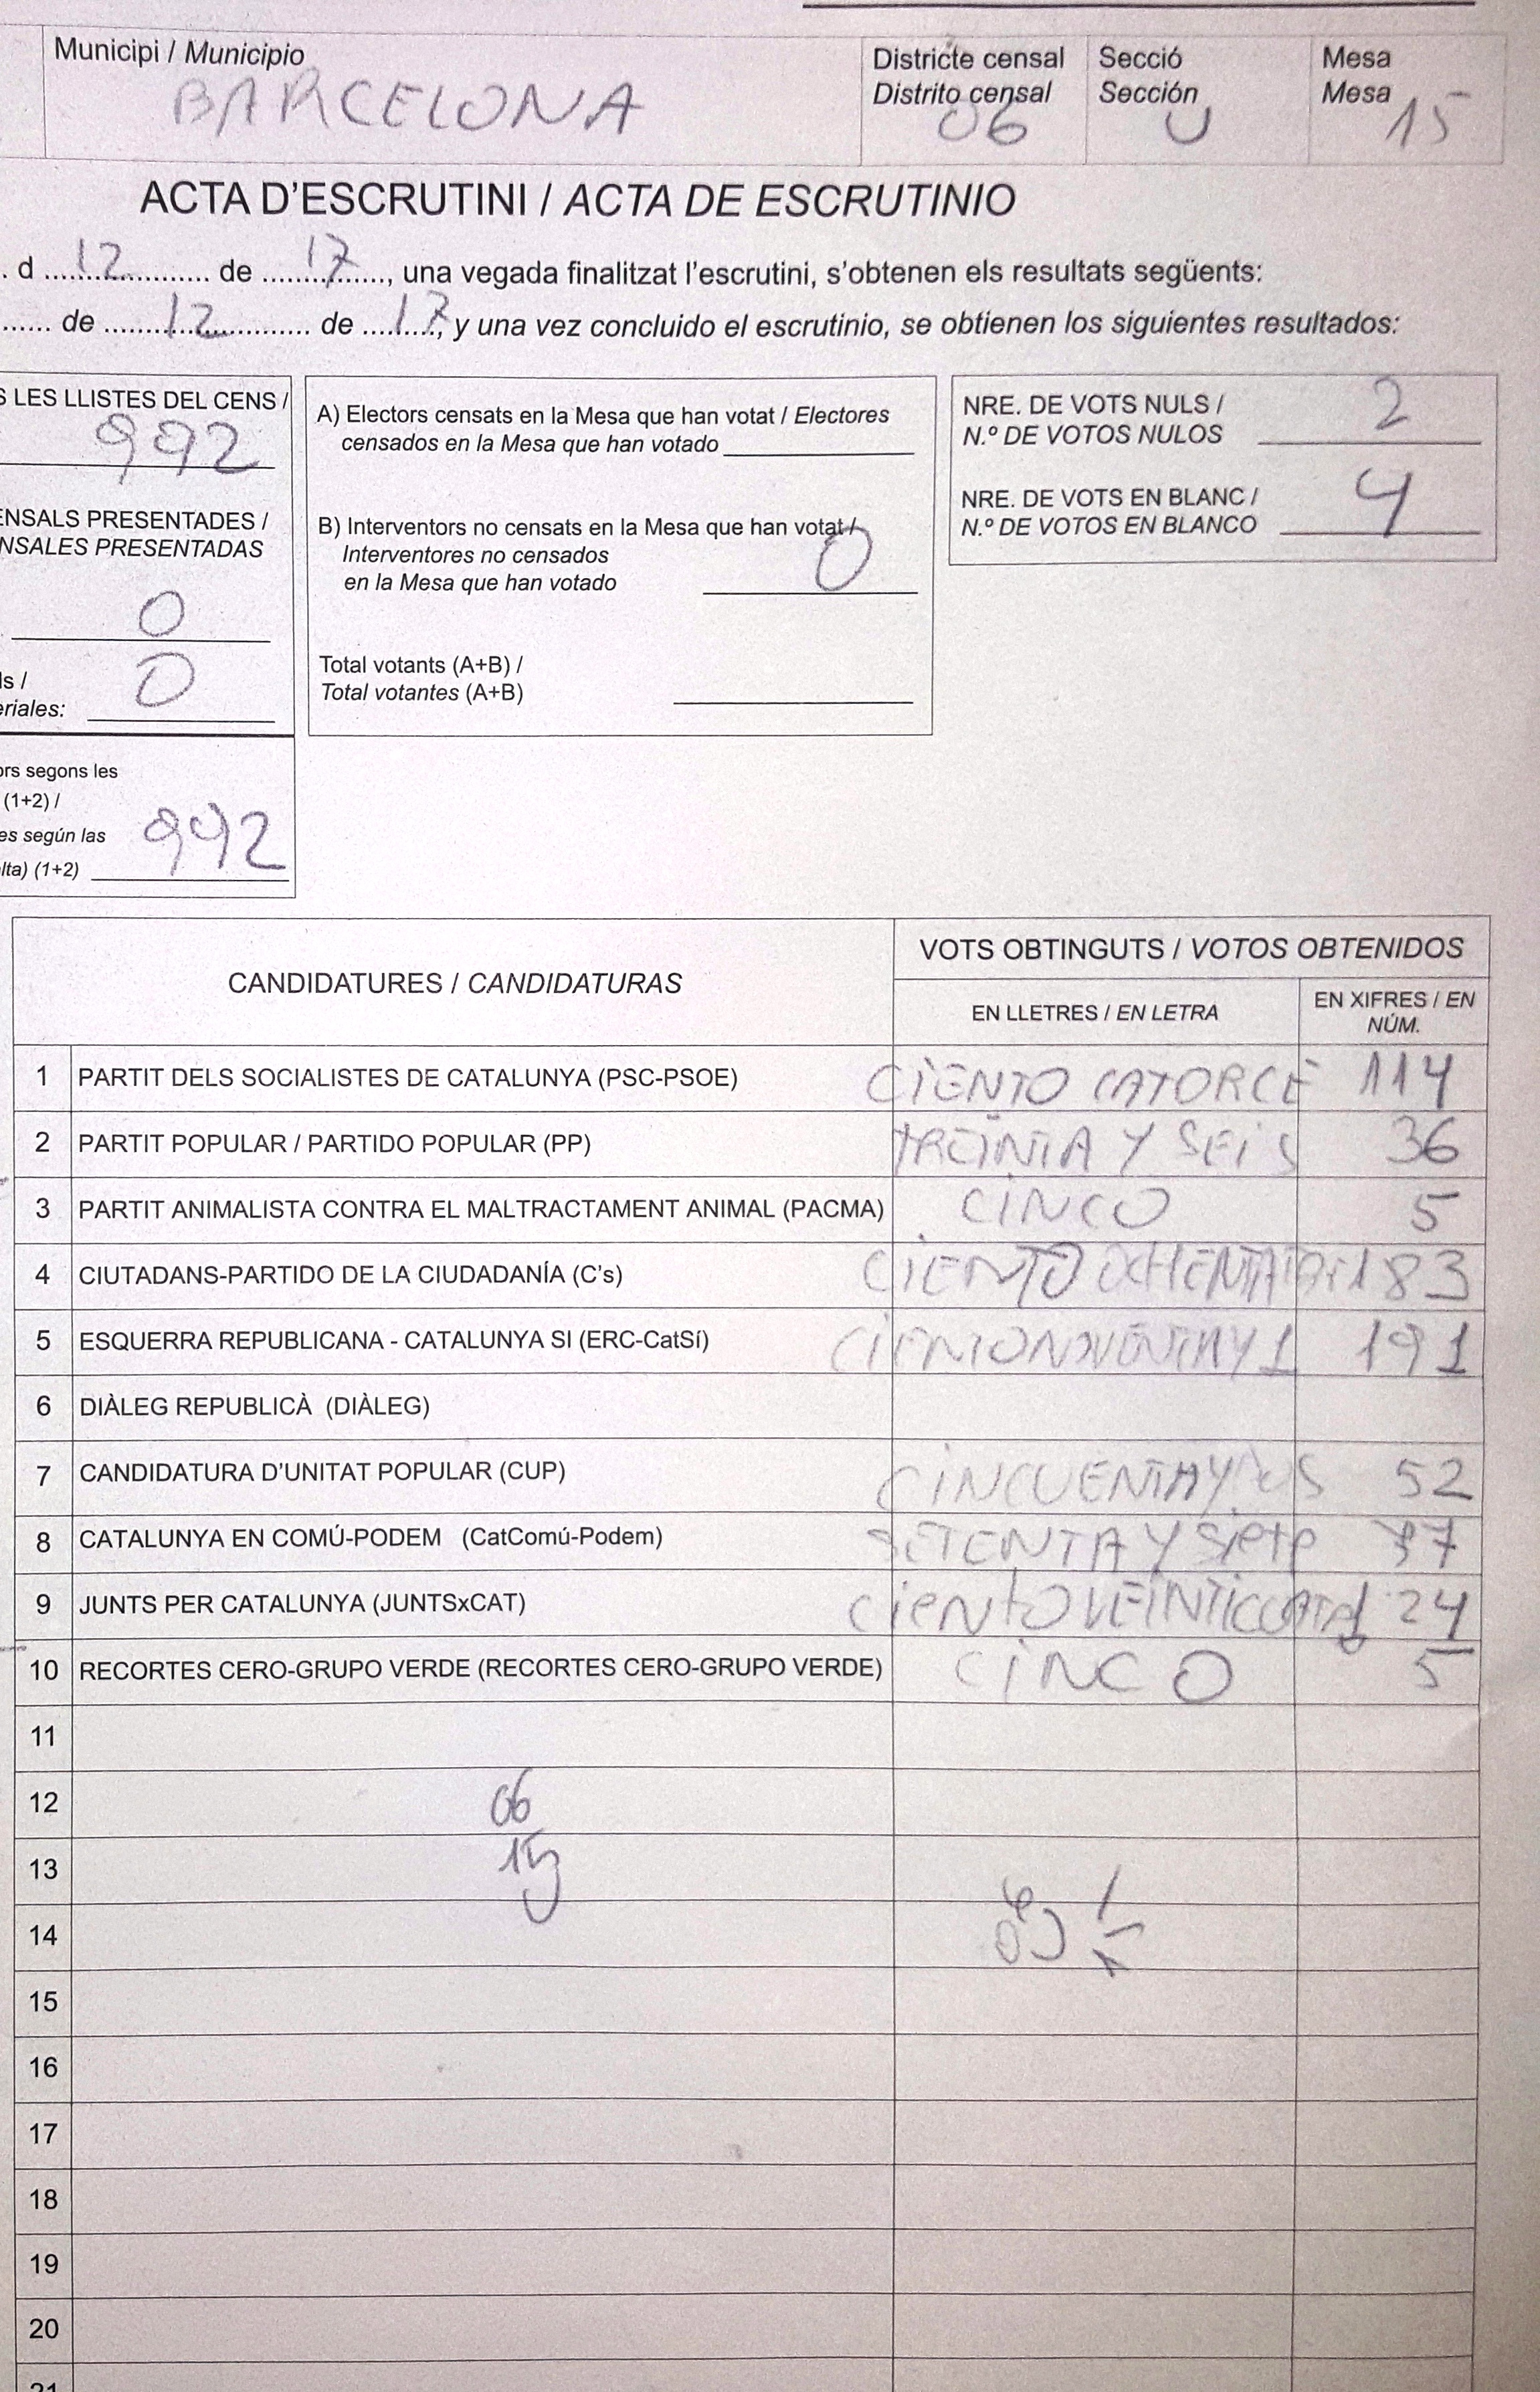 Municipi / Municipio
BARCELONA
Districte censal
Distrito censal
06
Secció
Sección
U
Mesa
Mesa
15
ACTA D'ESCRUTINI / ACTA DE ESCRUTINIO
. d ... 12 ... de ... 17 ..., una vegada finalitzat l'escrutini, s'obtenen els resultats següents:
... de ... 12 ... de ... 17, y una vez concluido el escrutinio, se obtienen los siguientes resultados:
LES LLISTES DEL CENS /
992
ENSALS PRESENTADES /
NSALES PRESENTADAS
0
ls /
eriales: 0
ors segons les
(1+2) /
es según las
lta) (1+2) 992
A) Electors censats en la Mesa que han votat / Electores
censados en la Mesa que han votado
B) Interventors no censats en la Mesa que han votat /
Interventores no censados
en la Mesa que han votado 0
Total votants (A+B) /
Total votantes (A+B)
NRE. DE VOTS NULS /
N.º DE VOTOS NULOS 2
NRE. DE VOTS EN BLANC /
N.º DE VOTOS EN BLANCO 4
CANDIDATURES / CANDIDATURAS
VOTS OBTINGUTS / VOTOS OBTENIDOS
EN LLETRES / EN LETRA
EN XIFRES / EN
NÚM.
1 PARTIT DELS SOCIALISTES DE CATALUNYA (PSC-PSOE) CIENTO CATORCE 114
2 PARTIT POPULAR / PARTIDO POPULAR (PP) TREINTA Y SEIS 36
3 PARTIT ANIMALISTA CONTRA EL MALTRACTAMENT ANIMAL (PACMA) CINCO 5
4 CIUTADANS-PARTIDO DE LA CIUDADANÍA (C's) CIENTO OCHENTA 183
5 ESQUERRA REPUBLICANA - CATALUNYA SI (ERC-CatSí) CIENTONOVENTAY1 191
6 DIÀLEG REPUBLICÀ (DIÀLEG)
7 CANDIDATURA D'UNITAT POPULAR (CUP) CINCUENTAYDOS 52
8 CATALUNYA EN COMÚ-PODEM (CatComú-Podem) SETENTA Y Siete 77
9 JUNTS PER CATALUNYA (JUNTSxCAT) CientoVEINTICUATRO 124
10 RECORTES CERO-GRUPO VERDE (RECORTES CERO-GRUPO VERDE) CINCO 5
11
12 06
13 15
14
15
16
17
18
19
20
21